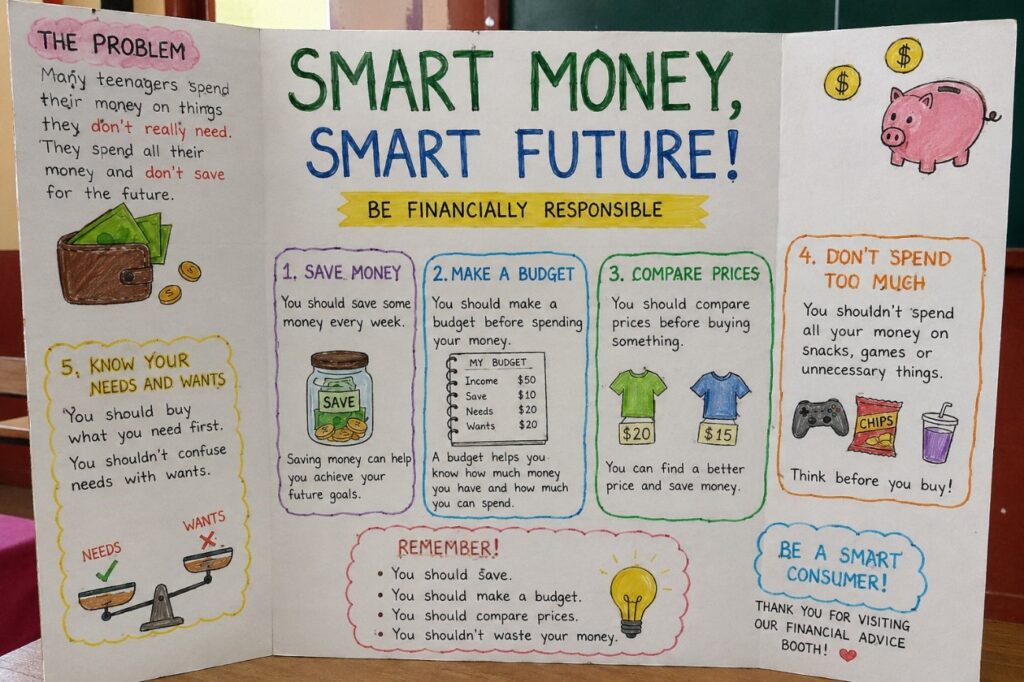 THE PROBLEM
Many teenagers spend
their money on things
they don't really need.
They spend all their
money and don't save
for the future.
5. KNOW YOUR
NEEDS AND WANTS
You should buy
what you need first.
You shouldn't confuse
needs with wants.
NEEDS
WANTS
SMART MONEY,
SMART FUTURE!
BE FINANCIALLY RESPONSIBLE
1. SAVE MONEY
You should save some
money every week.
SAVE
Saving money can help
you achieve your
future goals.
2. MAKE A BUDGET
You should make a
budget before spending
your money.
MY BUDGET
Income $50
Save $10
Needs $20
Wants $20
A budget helps you
know how much money
you have and how much
you can spend.
3. COMPARE PRICES
You should compare
prices before buying
something.
$20
$15
You can find a better
price and save money.
REMEMBER!
• You should save.
• You should make a budget.
• You should compare prices.
• You shouldn't waste your money.
$
$
4. DON'T SPEND
TOO MUCH
You shouldn't spend
all your money on
snacks, games or
unnecessary things.
CHIPS
Think before you buy!
BE A SMART
CONSUMER!
THANK YOU FOR VISITING
OUR FINANCIAL ADVICE
BOOTH!